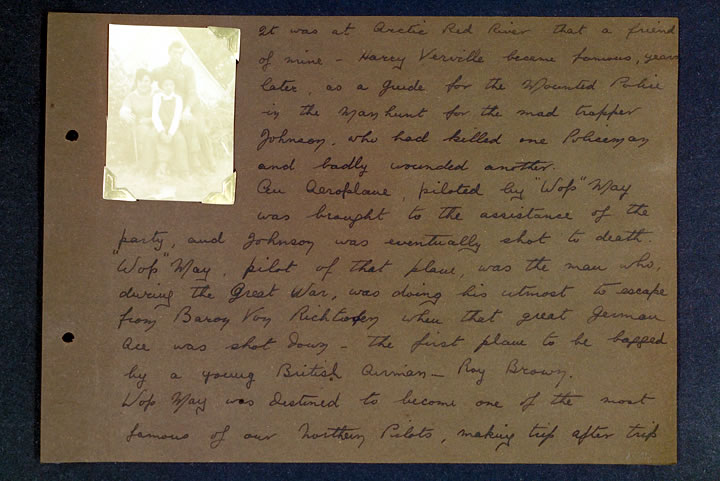 It was at Arctic Red River that a friend
of mine - Harry Verville became famous, years
later, as a guide for the Mounted Police
in the Manhunt for the mad trapper
Johnson, who had killed one Policeman
and badly wounded another.
An Aeroplane, piloted by "Wop" May
was brought to the assistance of the
party, and Johnson was eventually shot to death.
"Wop" May, pilot of that plane, was the man who,
during the Great War, was doing his utmost to escape
from Baron Von Richtofen when that great German
Ace was shot down - the first plane to be bagged
by a young British Airman - Roy Brown.
Wop May was destined to become one of the most
famous of our Northern Pilots, making trip after trip